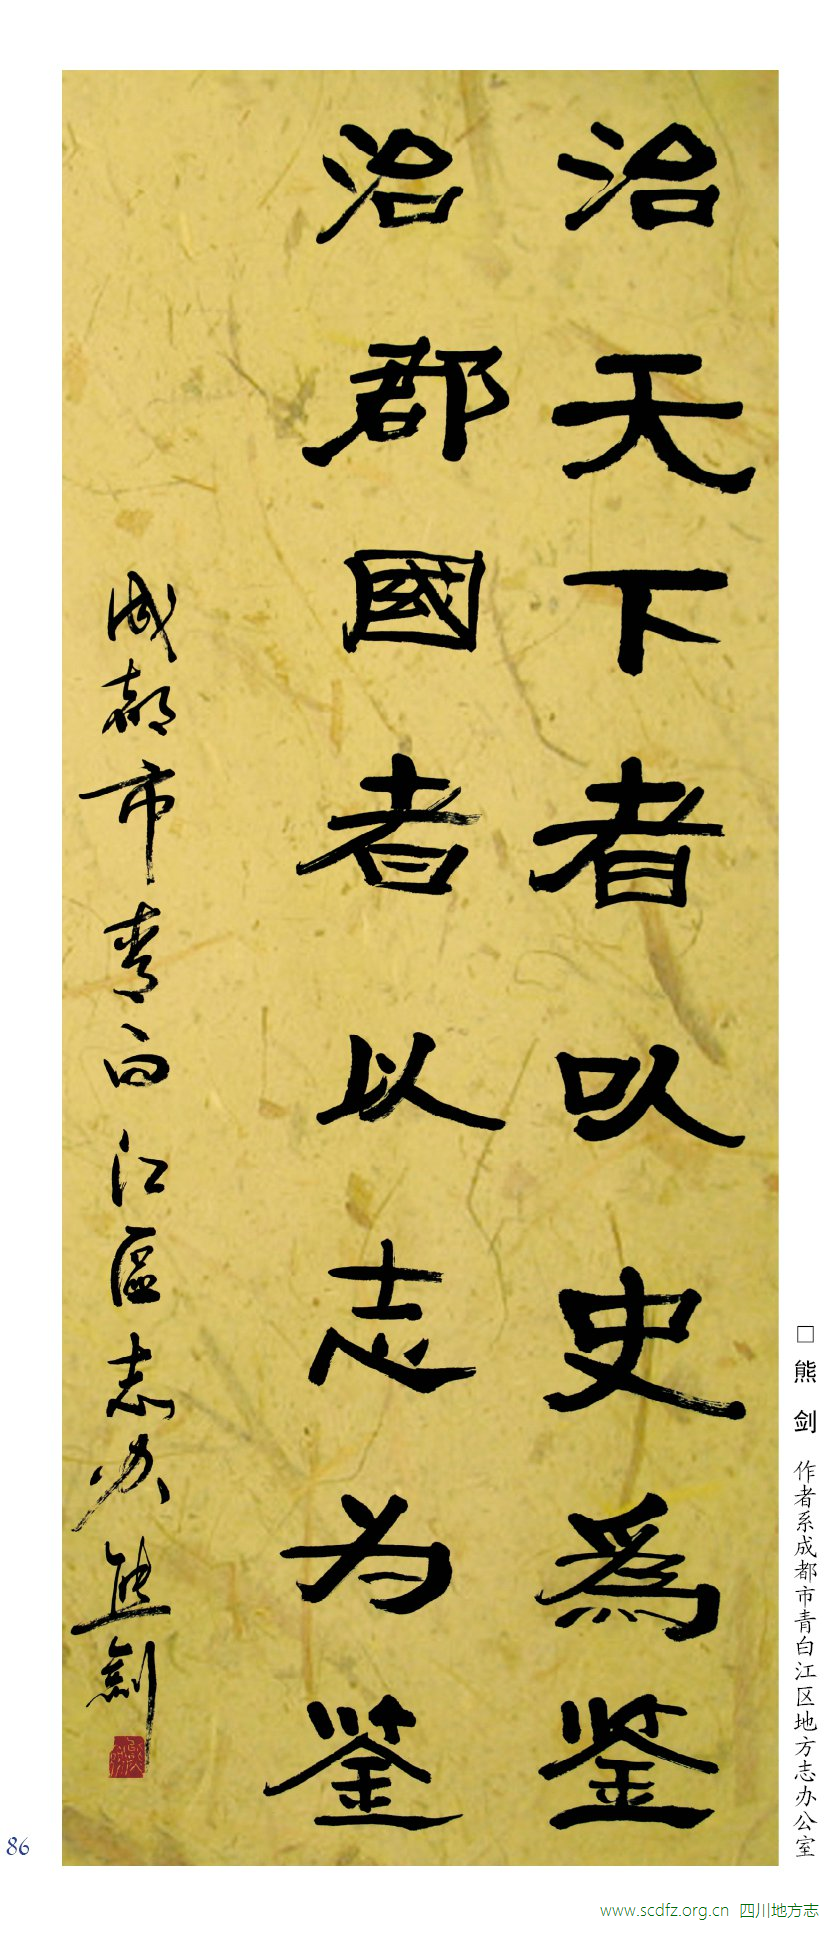 治天下者以史為鉴
治郡國者以志为鉴
成都市青白江區志办熊剑
□熊 剑 作者系成都市青白江区地方志办公室
86
www.scdfz.org.cn 四川地方志